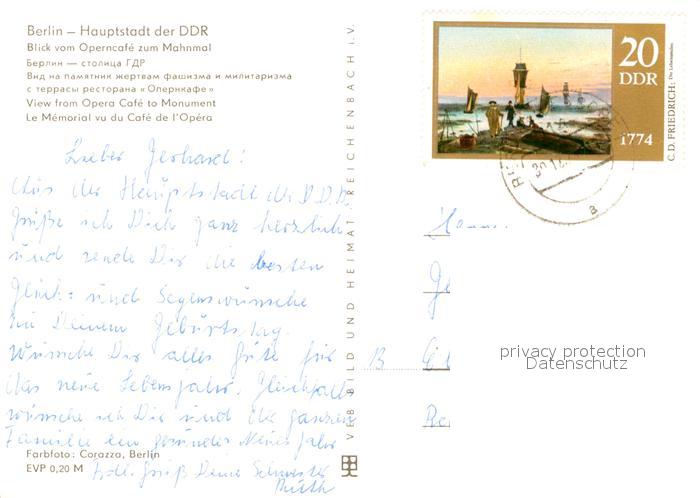 Berlin – Hauptstadt der DDR
Blick vom Operncafé zum Mahnmal
Берлин — столица ГДР
Вид на памятник жертвам фашизма и милитаризма
с террасы ресторана «Опернкафе»
View from Opera Café to Monument
Le Mémorial vu du Café de l'Opéra
Lieber Gerhard!
Aus der Hauptstadt der D.D.R.
grüße ich Dich ganz herzlich
und sende Dir die besten
Glück= und Segenswünsche
zu Deinem Geburtstag.
Wünsche Dir alles Gute für
das neue Lebensjahr. Gleichfalls
wünsche ich Dir und der ganzen
Familie ein gesundes Neues Jahr
Herzl. Grüß Deine Schwester
Ruth
Farbfoto: Corazza, Berlin
EVP 0,20 M
VEB BILD UND HEIMAT REICHENBACH i.V.
20
DDR
1774
C.D. FRIEDRICH: Die Lebensstufen
30.12.
a
Herrn
B
privacy protection
Datenschutz